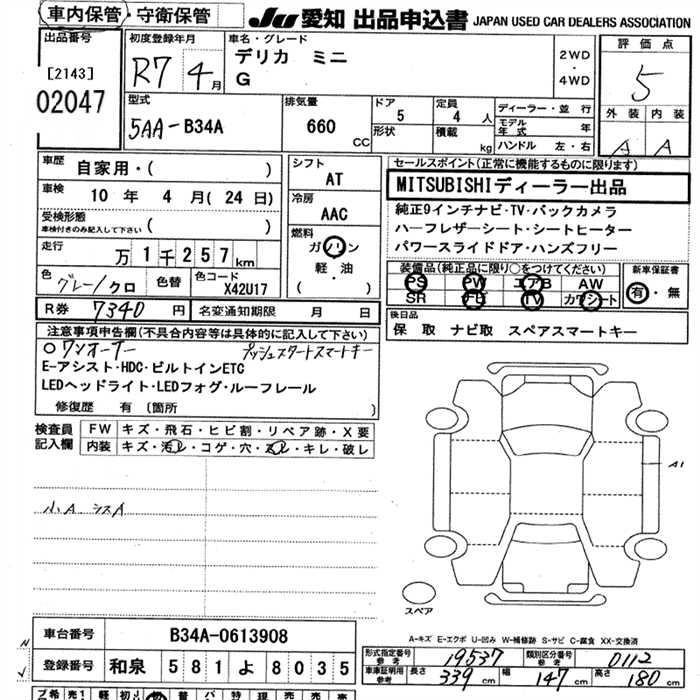 車内保管・守衛保管
JU 愛知 出品申込書 JAPAN USED CAR DEALERS ASSOCIATION
出品番号
[2143]
02047
初度登録年月
R7 4月
車名・グレード
デリカ ミニ
G
2WD
・
4WD
評価点
5
外装 内装
A A
型式
5AA-B34A
排気量
660
CC
ドア
5
定員
4 人
形状
積載
kg
ディーラー・並行
モデル年式 年
ハンドル 左・右
車歴
自家用・( )
車検
10年 4月(24日)
受検形態
車検付きのみ記入して下さい ( )
走行
万1千257km
色
グレー/クロ
色替
色コード
X42U17
シフト
AT
冷房
AAC
燃料
ガソリン
軽・油
( )
セールスポイント(正常に機能するものに限ります)
MITSUBISHIディーラー出品
純正9インチナビ・TV・バックカメラ
ハーフレザーシート・シートヒーター
パワースライドドア・ハンズフリー
装備品(純正品に限り○をつけてください)
PS PW エアB AW
SR ナビ TV カワシート
新車保証書
有・無
R券 7340 円
名変通知期限 月 日
後日品
保 取 ナビ取 スペアスマートキー
注意事項申告欄(不具合内容等は具体的に記入して下さい)
○ワンオーナー プッシュスタートスマートキー
E-アシスト・HDC・ビルトインETC
LEDヘッドライト・LEDフォグ・ルーフレール
修復歴 有 [箇所 ]
検査員記入欄
FW キズ・飛石・ヒビ割・リペア跡・X要
内装 キズ・汚レ・コゲ・穴・スレ・キレ・破レ
小A シスA
A1
スペア
A-キズ E-エクボ U-凹み W-補修跡 S-サビ C-腐食 XX-交換済
車台番号
B34A-0613908
登録番号
和泉 581よ8035
形式指定番号
参考
19537
類別区分番号
参考
0112
車庫証明用
参考
長さ 339 cm 幅 147 cm 高さ 180 cm